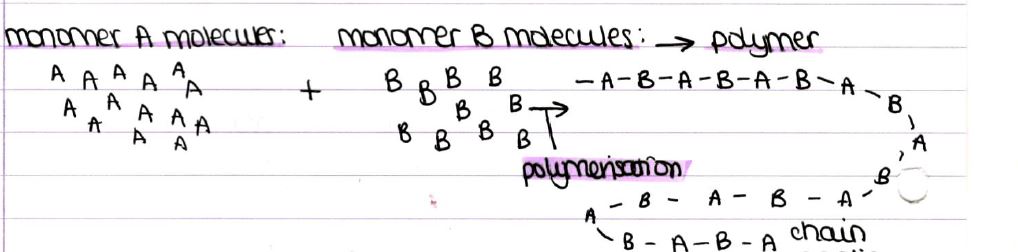 monomer A molecules: monomer B molecules: → polymer
A A A A A A + B B B B - A - B - A - B - A - B - A - B
A A A A A A B B → A
A A B B B B B
polymerisation
A - B - A - B - A -
B - A - B - A chain